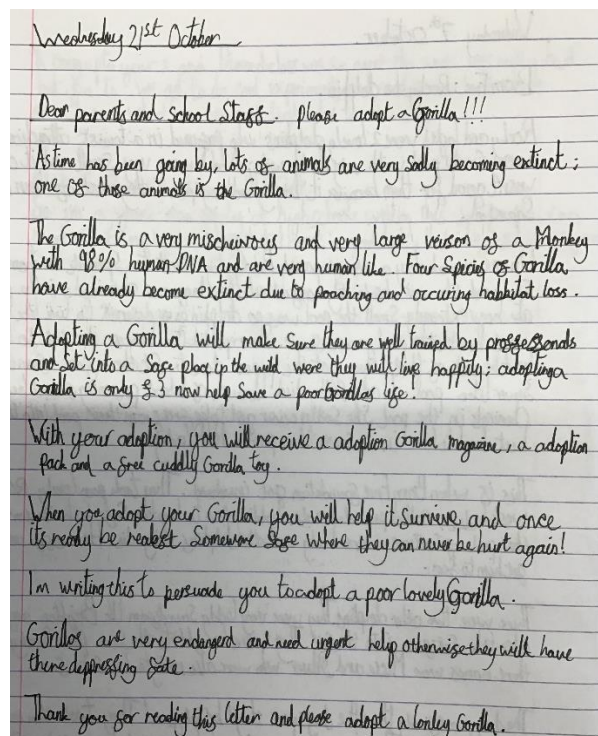 Wednesday 21st October
Dear parents and School Staff. Please adopt a Gorilla!!!
As time has been going by, lots of animals are very sadly becoming extinct;
one of those animals is the Gorilla.
The Gorilla is a very mischeivous and very large verison of a Monkey
with 98% human DNA and are very human like. Four Spicies of Gorilla
have already become extinct due to poaching and occuring habbitat loss.
Adopting a Gorilla will make Sure they are well trained by
and Set into a Safe place in the wild were they will live happily; adopting a
Gorilla is only £3 now help Save a poor Gorillas life.
With your adoption, you will receive a adoption Gorilla magazine, a adoption
pack and a free cuddly Gorilla toy.
When you adopt your Gorilla, you will help it Survive and once
its ready be Somewere Safe where they can never be hurt again!
Im writing this to persuade you to adopt a poor lovely Gorilla.
Gorillas are very endangerd and need urgent help otherwise they will have
there deppressing fate.
Thank you for reading this letter and please adopt a lonley Gorilla.